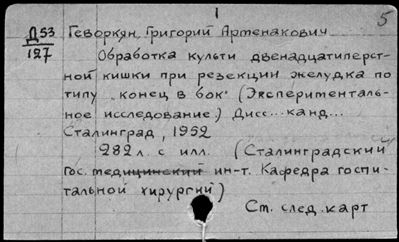 1
5
Д53 Геворкян, Григорий Артенакович
127
Обработка культи двенадцатиперст-
ной кишки при резекции желудка по
типу „конец в бок" (Эксперименталь-
ное исследование.) Дисс... канд...
Сталинград, 1952
282 л. с илл. (Сталинградский
Гос. медицинский ин-т. Кафедра госпи-
тальной хирургии)
См. след. карт